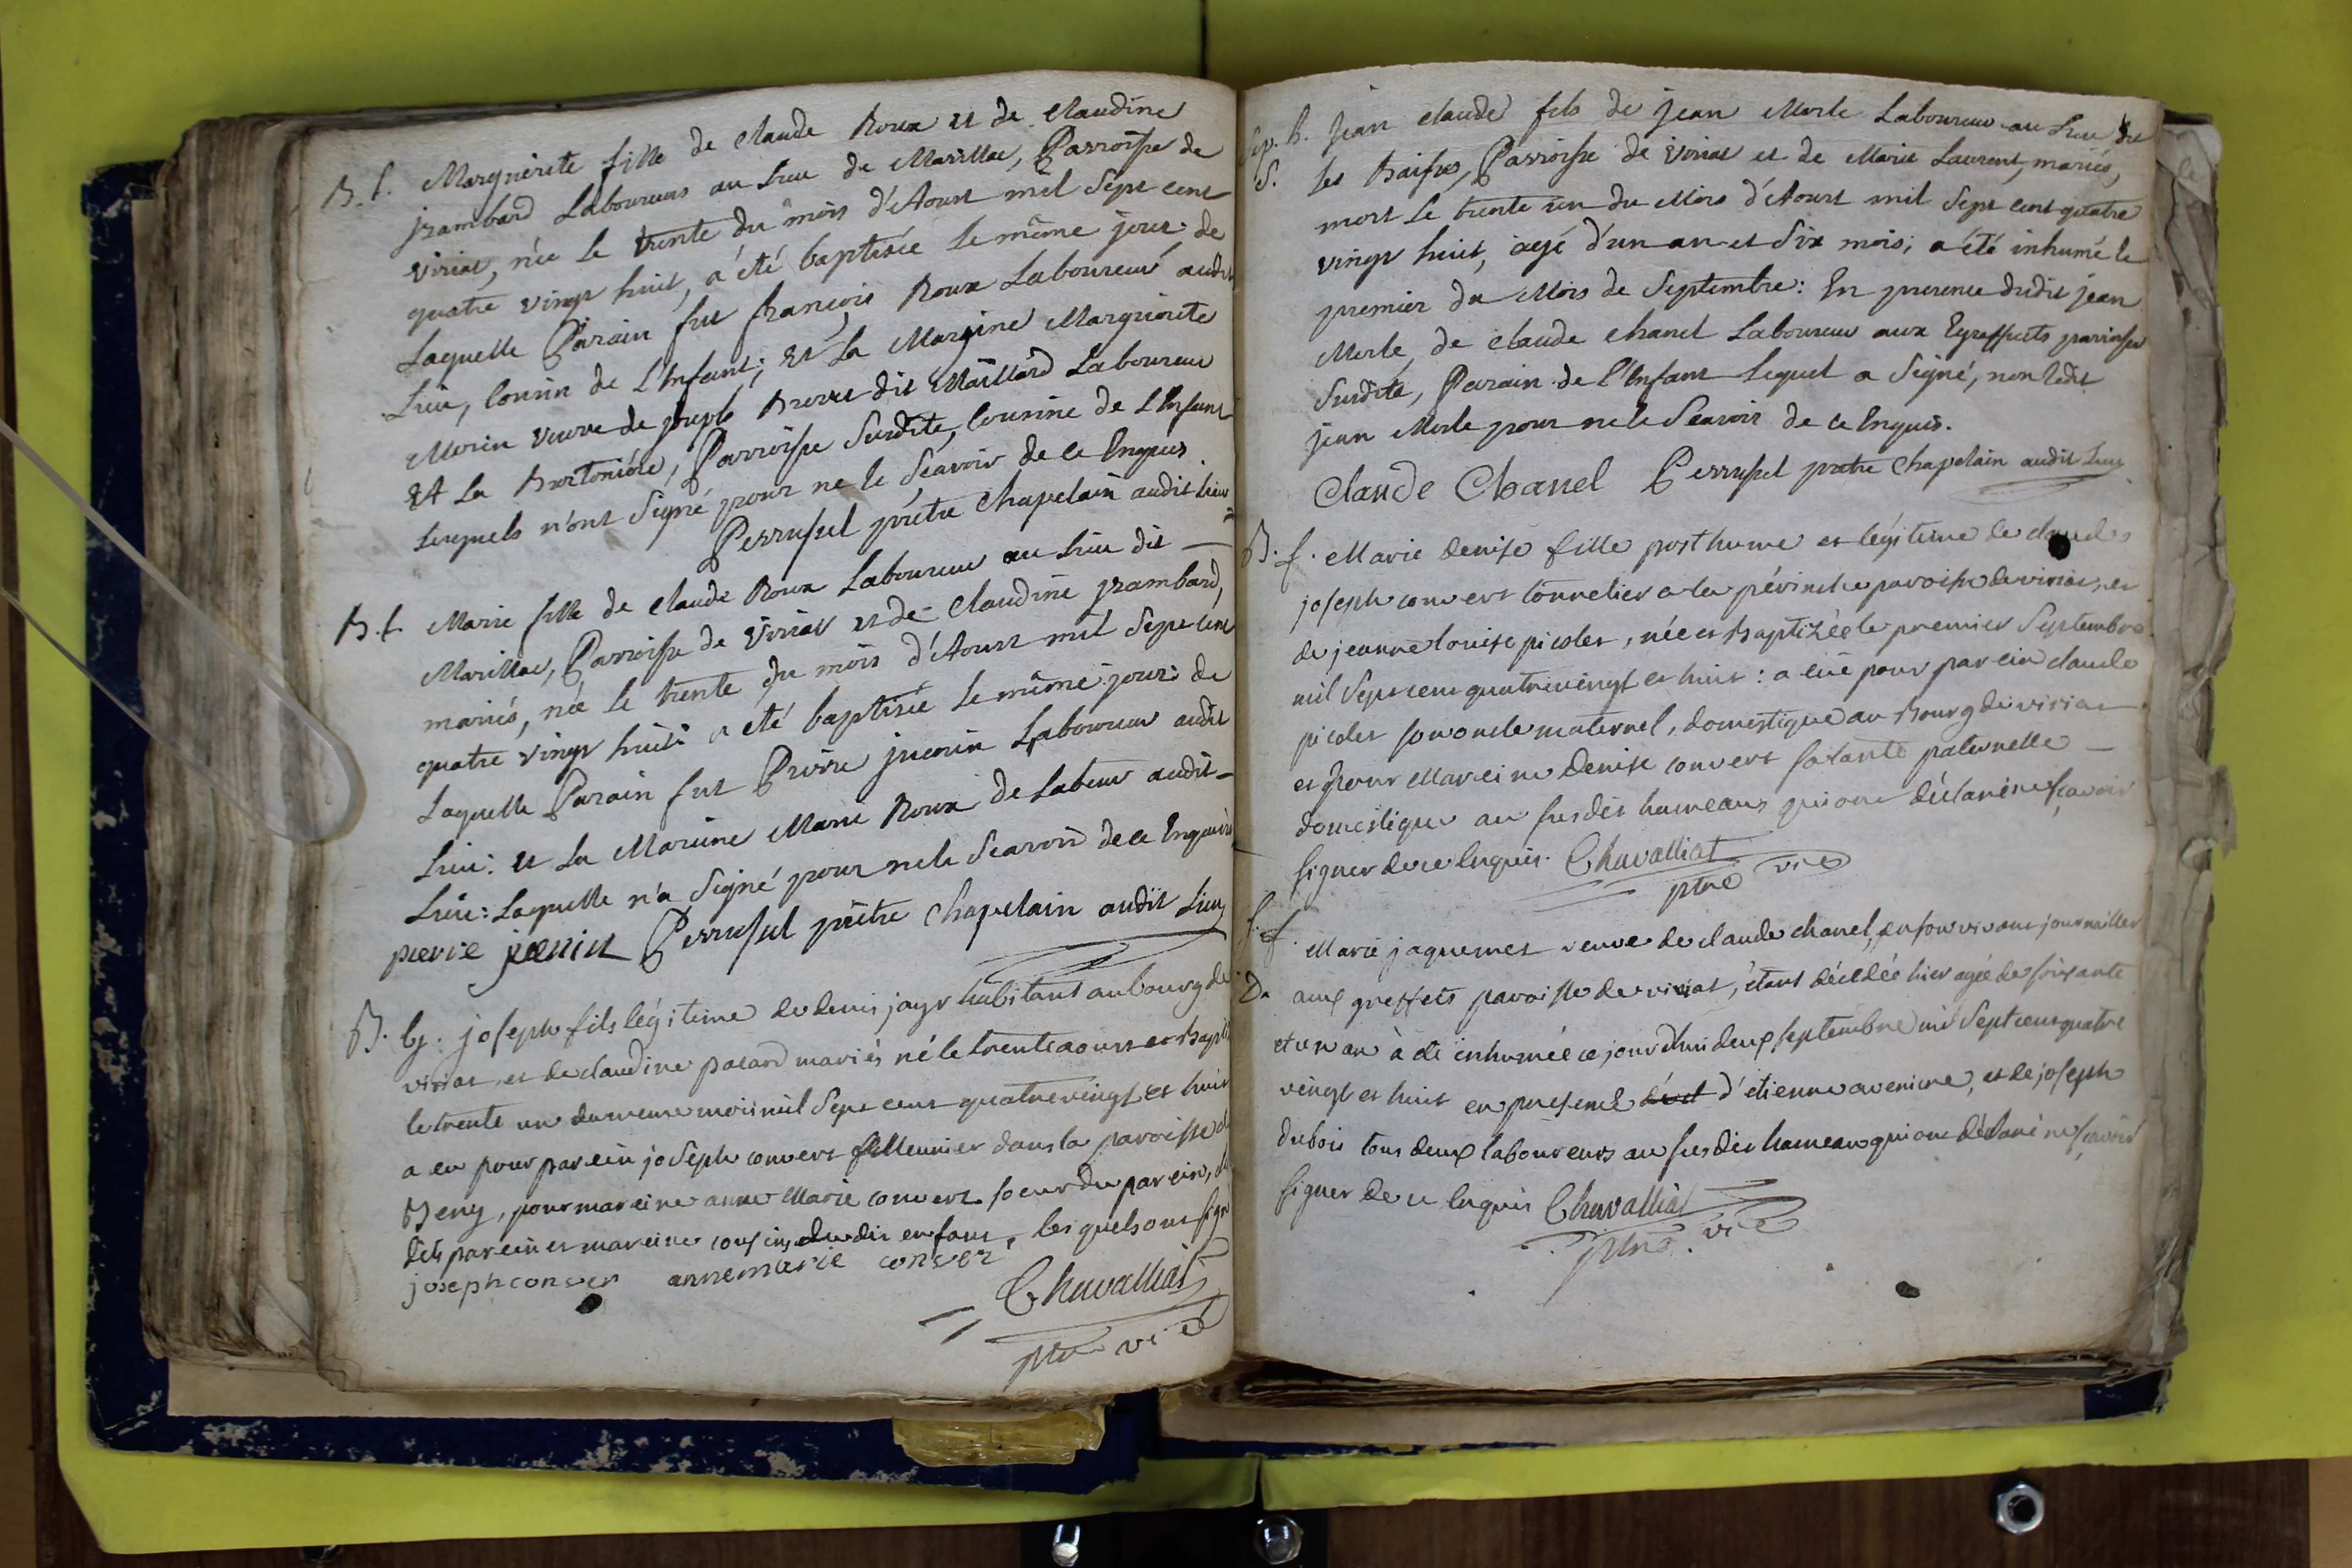 B. f. Marguerite fille de claude Roux et de Claudine
jzambard Laboureurs au Lieu de Marillac, Parroisse de
Viriat, née le trente du mois d'Aoust mil Sept cent
quatre vingt huit, a été baptisée le même jour: de
Laquelle Parain fut françois Roux Laboureur audit
Lieu, Cousin de L'Enfant; Et La Maraine Marguerite
Morin veuve de joseph Brevet dit Maillard Laboureur
Et La Bretonière, Parroisse Susdite, Cousine de L'Enfant
Lesquels n'ont Signé pour ne le Scavoir de ce Enquis
Perrusset prêtre Chapelain audit Lieu
B. f. Marie fille de Claude Roux Laboureur au Lieu dit
Marillac, Parroisse de Viriat et de Claudine jzambard,
mariés, née le trente du mois d'Aoust mil Sept cent
quatre vingt huit: a été baptisée le même jour: de
Laquelle Parain fut Pierre juenin Laboureur audit
Lieu: et La Maraine Marie Roux de Labeur audit
Lieu: Laquelle n'a Signé pour ne le Scavoir de ce Enquise
pierre juenin Perrusset prêtre Chapelain audit Lieu
B. g. joseph fils légitime de denis jayr habitant au bourg de
viriat et de claudine pacard mariés né le trente aoust et Baptisé
le trente un du meme mois mil Sept cent quatrevingt et huit
a eu pour parein joseph convert Meunier dans la paroisse de
Beny, pour mareine anne Marie convert soeur du parein,
dits parein et mareine cousins dudit enfant, lesquels ont signé
joseph conver annemarie conver
Chavalliat
ptre vic
Sep. h. Jean claude fils de jean Merle Laboureur au Lieu de
S. les Baises, Parroisse de Viriat et de Marie Laurent, mariés,
mort Le trente un du Mois d'Aoust mil Sept cent quatre
vingt huit, agé d'un an et Six mois; a été inhumé le
premier du Mois de Septembre: En presence dudit jean
Merle, de claude chanel Laboureur aux Egreffets parroisse
Susdite, Parain de l'Enfant Lequel a Signé, non Ledit
jean Merle pour ne le Scavoir de ce Enquis.
Claude Chanel Perrusset prêtre Chapelain audit Lieu
B. f. Marie denise fille posthume et légitime de claude
joseph convert tonnelier a la pérouse paroisse de viriat, et
de jeanne louise picolet, née et Baptizée le premier Septembre
mil Sept cent quatrevingt et huit: a eüe pour parein claude
picolet son oncle maternel, domestique au Bourg de viriat
et pour Mareine denise convert sa tante paternelle
domestique au susdit hameau qui ont déclaré ne sçavoir
signer de ce Enquis. Chavalliat
ptre vic
S. f. Marie jaquemet veuve de claude chanel, en son vivant journallier
D. aux greffets paroisse de viriat, étant décédée hier agée de soixante
et un an à eté inhumée ce jourdhui deux septembre mil Sept cent quatre
vingt et huit en presence d'etienne avenine, et de joseph
dubois tous deux laboureurs au susdit hameau qui ont déclaré ne sçavoir
signer de ce Enquis Chavalliat
ptre. vic